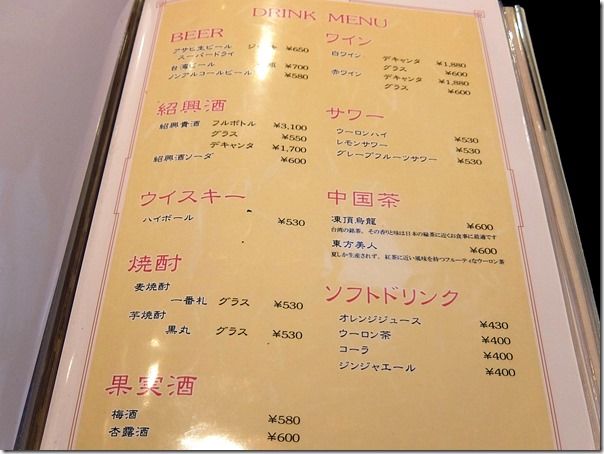 DRINK MENU
BEER
アサヒ生ビール ジョッキ ¥650
スーパードライ
台湾ビール ¥700
ノンアルコールビール ¥580
紹興酒
紹興貴酒 フルボトル ¥3,100
グラス ¥550
デキャンタ ¥1,700
紹興酒ソーダ ¥600
ウイスキー
ハイボール ¥530
焼酎
麦焼酎
一番札 グラス ¥530
芋焼酎
黒丸 グラス ¥530
果実酒
梅酒 ¥580
杏露酒 ¥600
ワイン
白ワイン デキャンタ ¥1,880
グラス ¥600
赤ワイン デキャンタ ¥1,880
グラス ¥600
サワー
ウーロンハイ ¥530
レモンサワー ¥530
グレープフルーツサワー ¥530
中国茶
凍頂烏龍 ¥600
台湾の銘茶。その香りと味は日本の緑茶に近くお食事に最適です
東方美人 ¥600
夏しか生産されず、紅茶に近い風味を持つフルーティなウーロン茶
ソフトドリンク
オレンジジュース ¥430
ウーロン茶 ¥400
コーラ ¥400
ジンジャエール ¥400